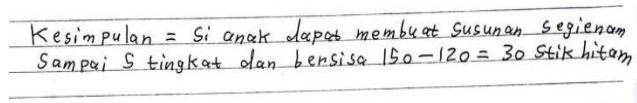 Kesimpulan = Si anak dapat membuat susunan segienam
Sampai 5 tingkat dan bersisa 150-120 = 30 stik hitam